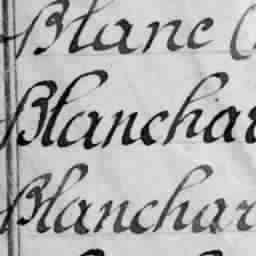 Blanc (
Blanchar
Blanchar